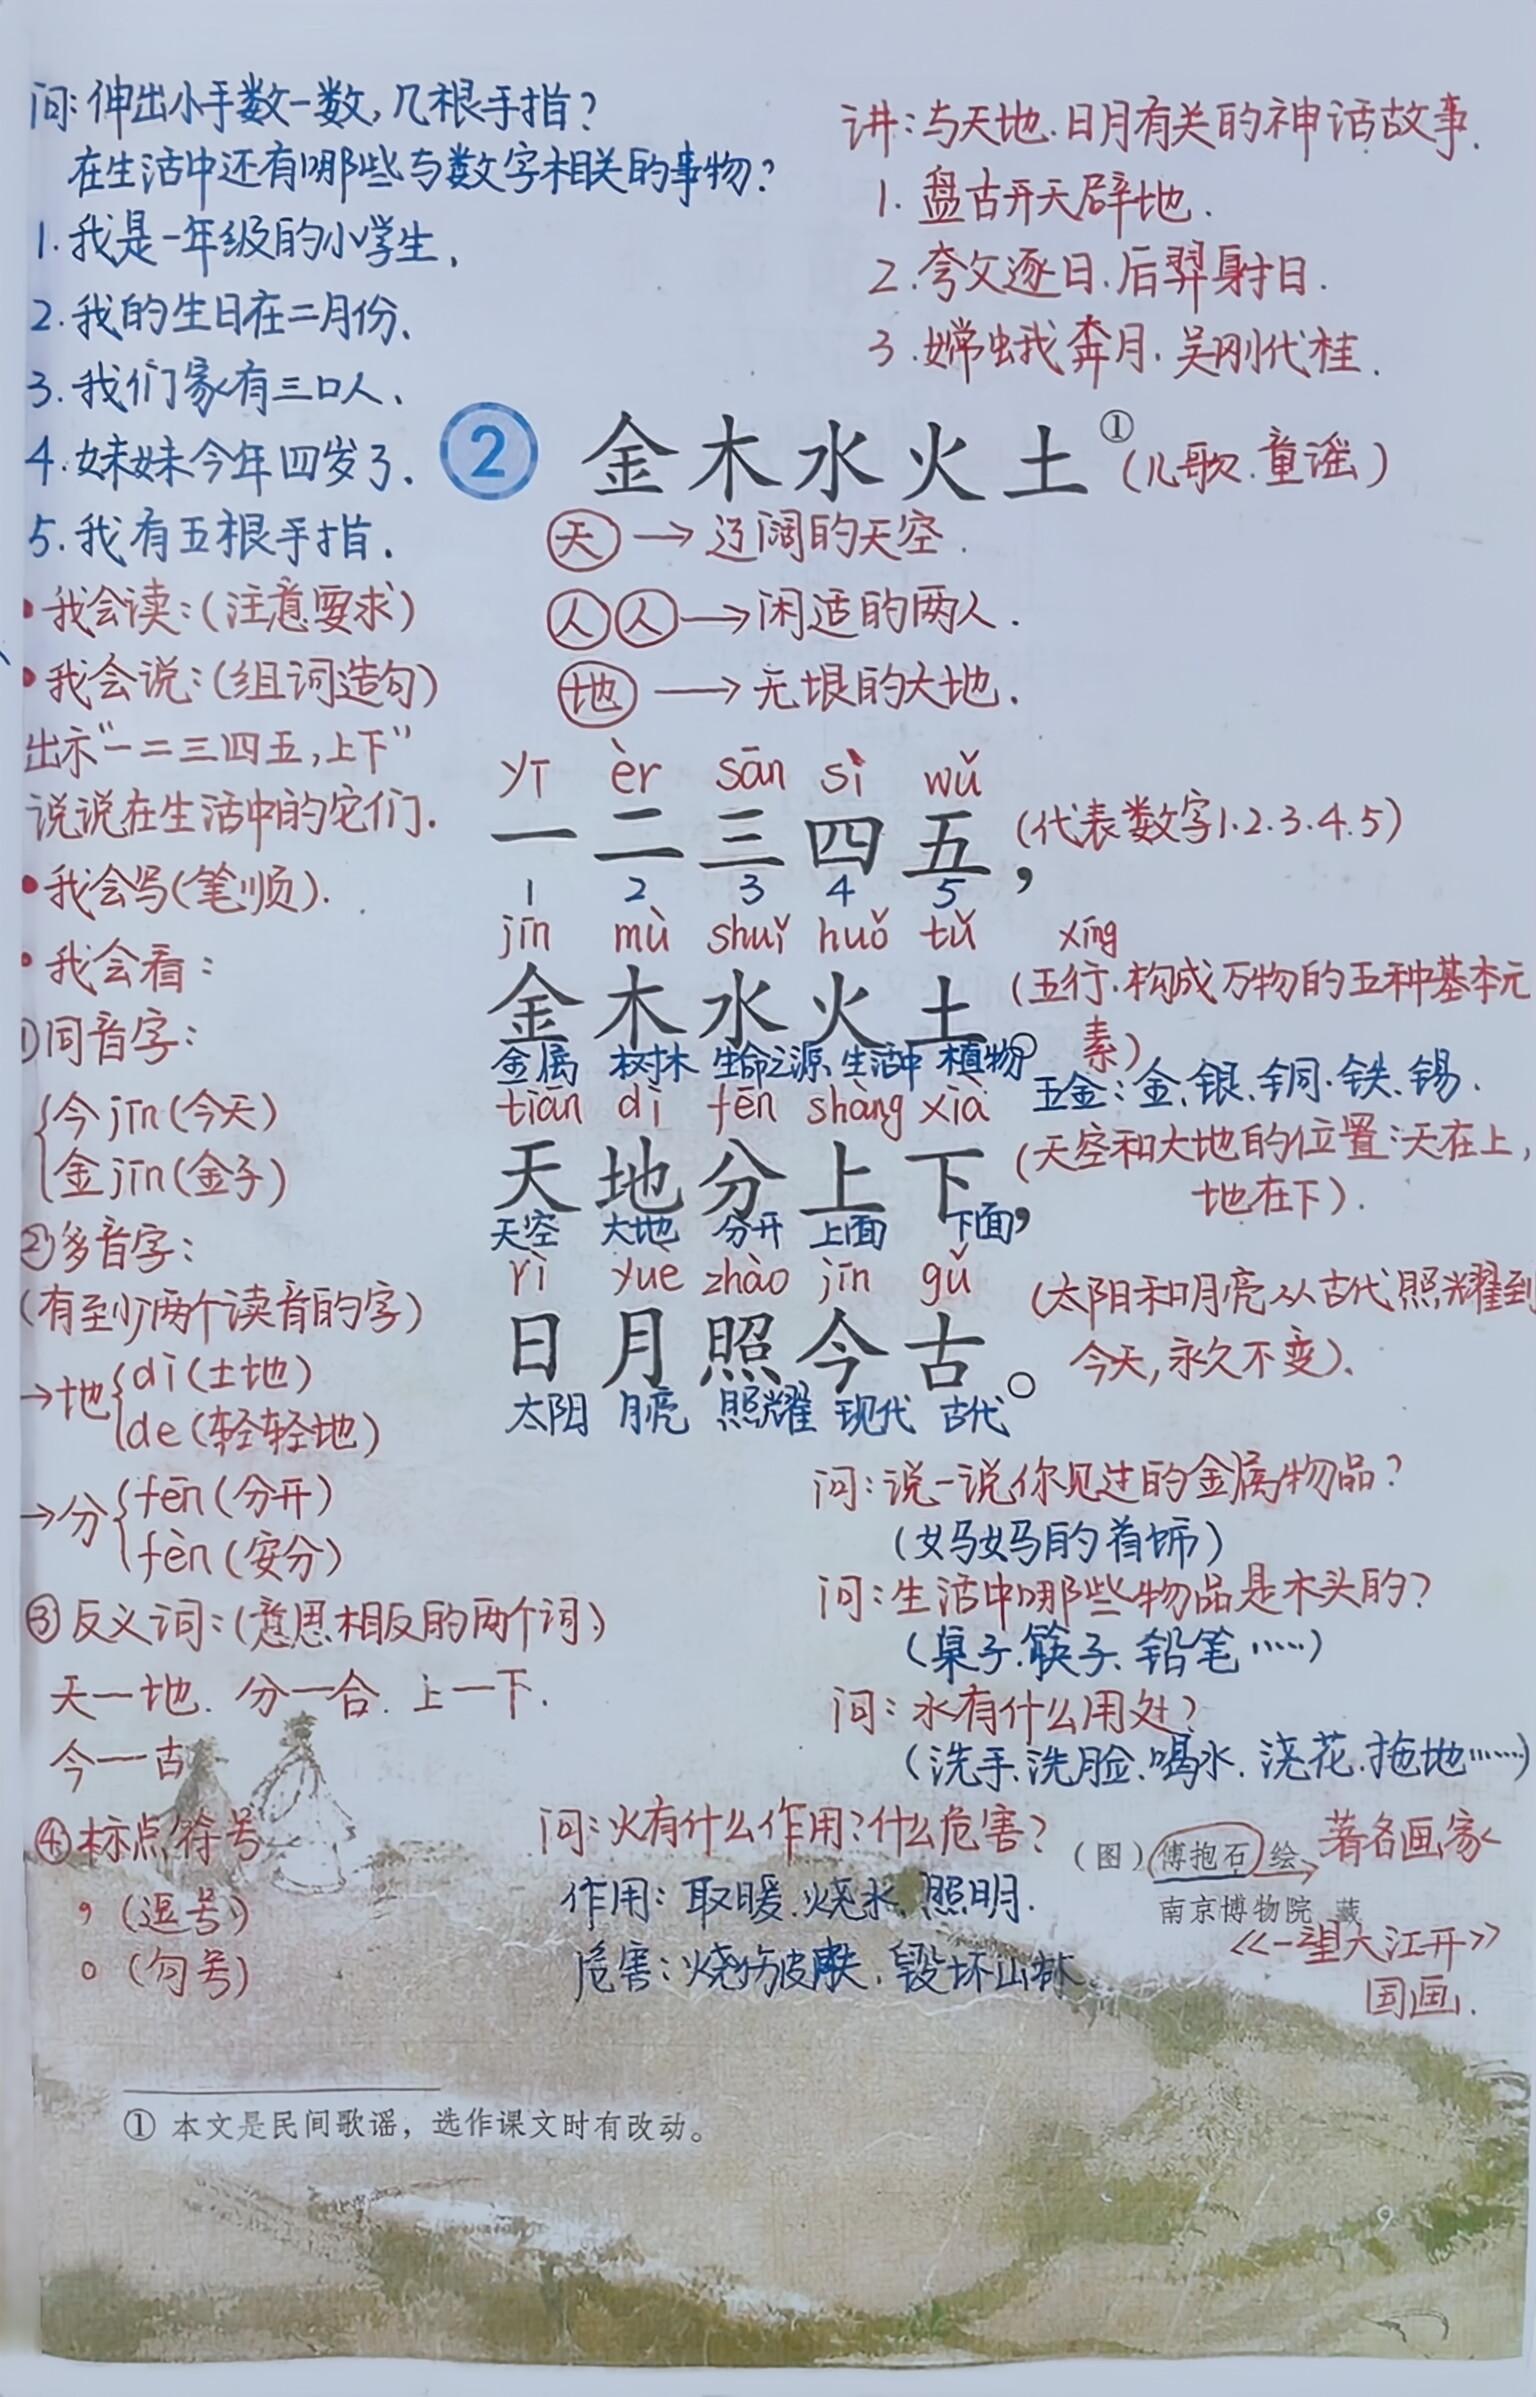 问:伸出小手数一数,几根手指?
在生活中还有哪些与数字相关的事物?
1.我是一年级的小学生.
2.我的生日在二月份.
3.我们家有三口人.
4.妹妹今年四岁了.
5.我有五根手指.
讲:与天地.日月有关的神话故事.
1.盘古开天辟地.
2.夸父逐日.后羿射日.
3.嫦娥奔月.吴刚伐桂.
2 金木水火土① (儿歌.童谣)
天→辽阔的天空.
人人→闲适的两人.
地→无垠的大地.
•我会读:(注意要求)
•我会说:(组词造句)
出示"一二三四五,上下"
说说在生活中的它们.
•我会写(笔顺).
•我会看:
①同音字:
今jīn(今天)
金jīn(金子)
②多音字:
(有至少两个读音的字)
→地 dì(土地)
de(轻轻地)
→分 fēn(分开)
fèn(安分)
③反义词:(意思相反的两个词)
天—地. 分—合. 上—下.
今—古
④标点符号
,(逗号)
。(句号)
yī èr sān sì wǔ
一二三四五, (代表数字1.2.3.4.5)
1 2 3 4 5
jīn mù shuǐ huǒ tǔ xíng
金木水火土。 (五行.构成万物的五种基本元
素)
金属 树木 生命之源、生活中 植物
五金:金、银、铜.铁、锡.
tiān dì fēn shàng xià
天地分上下, (天空和大地的位置:天在上,
地在下).
天空 大地 分开 上面 下面
rì yuè zhào jīn gǔ
日月照今古。 (太阳和月亮从古代照耀到
今天,永久不变).
太阳 月亮 照耀 现代 古代
问:说一说你见过的金属物品?
(妈妈的首饰)
问:生活中哪些物品是木头的?
(桌子.筷子、铅笔……)
问:水有什么用处?
(洗手、洗脸、喝水.浇花.拖地……)
问:火有什么作用?什么危害?
作用:取暖.烧水.照明.
危害:烧伤皮肤.毁坏山林.
(图)傅抱石 绘 →著名画家
南京博物院 藏
《一望大江开》
国画.
① 本文是民间歌谣,选作课文时有改动。
9